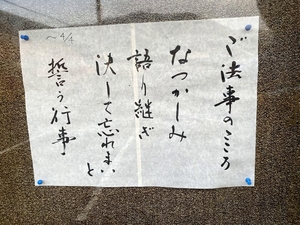 ご法事のこころ
なつかしみ
語り継ぎ
決して忘れまいと
誓う行事
~4/4